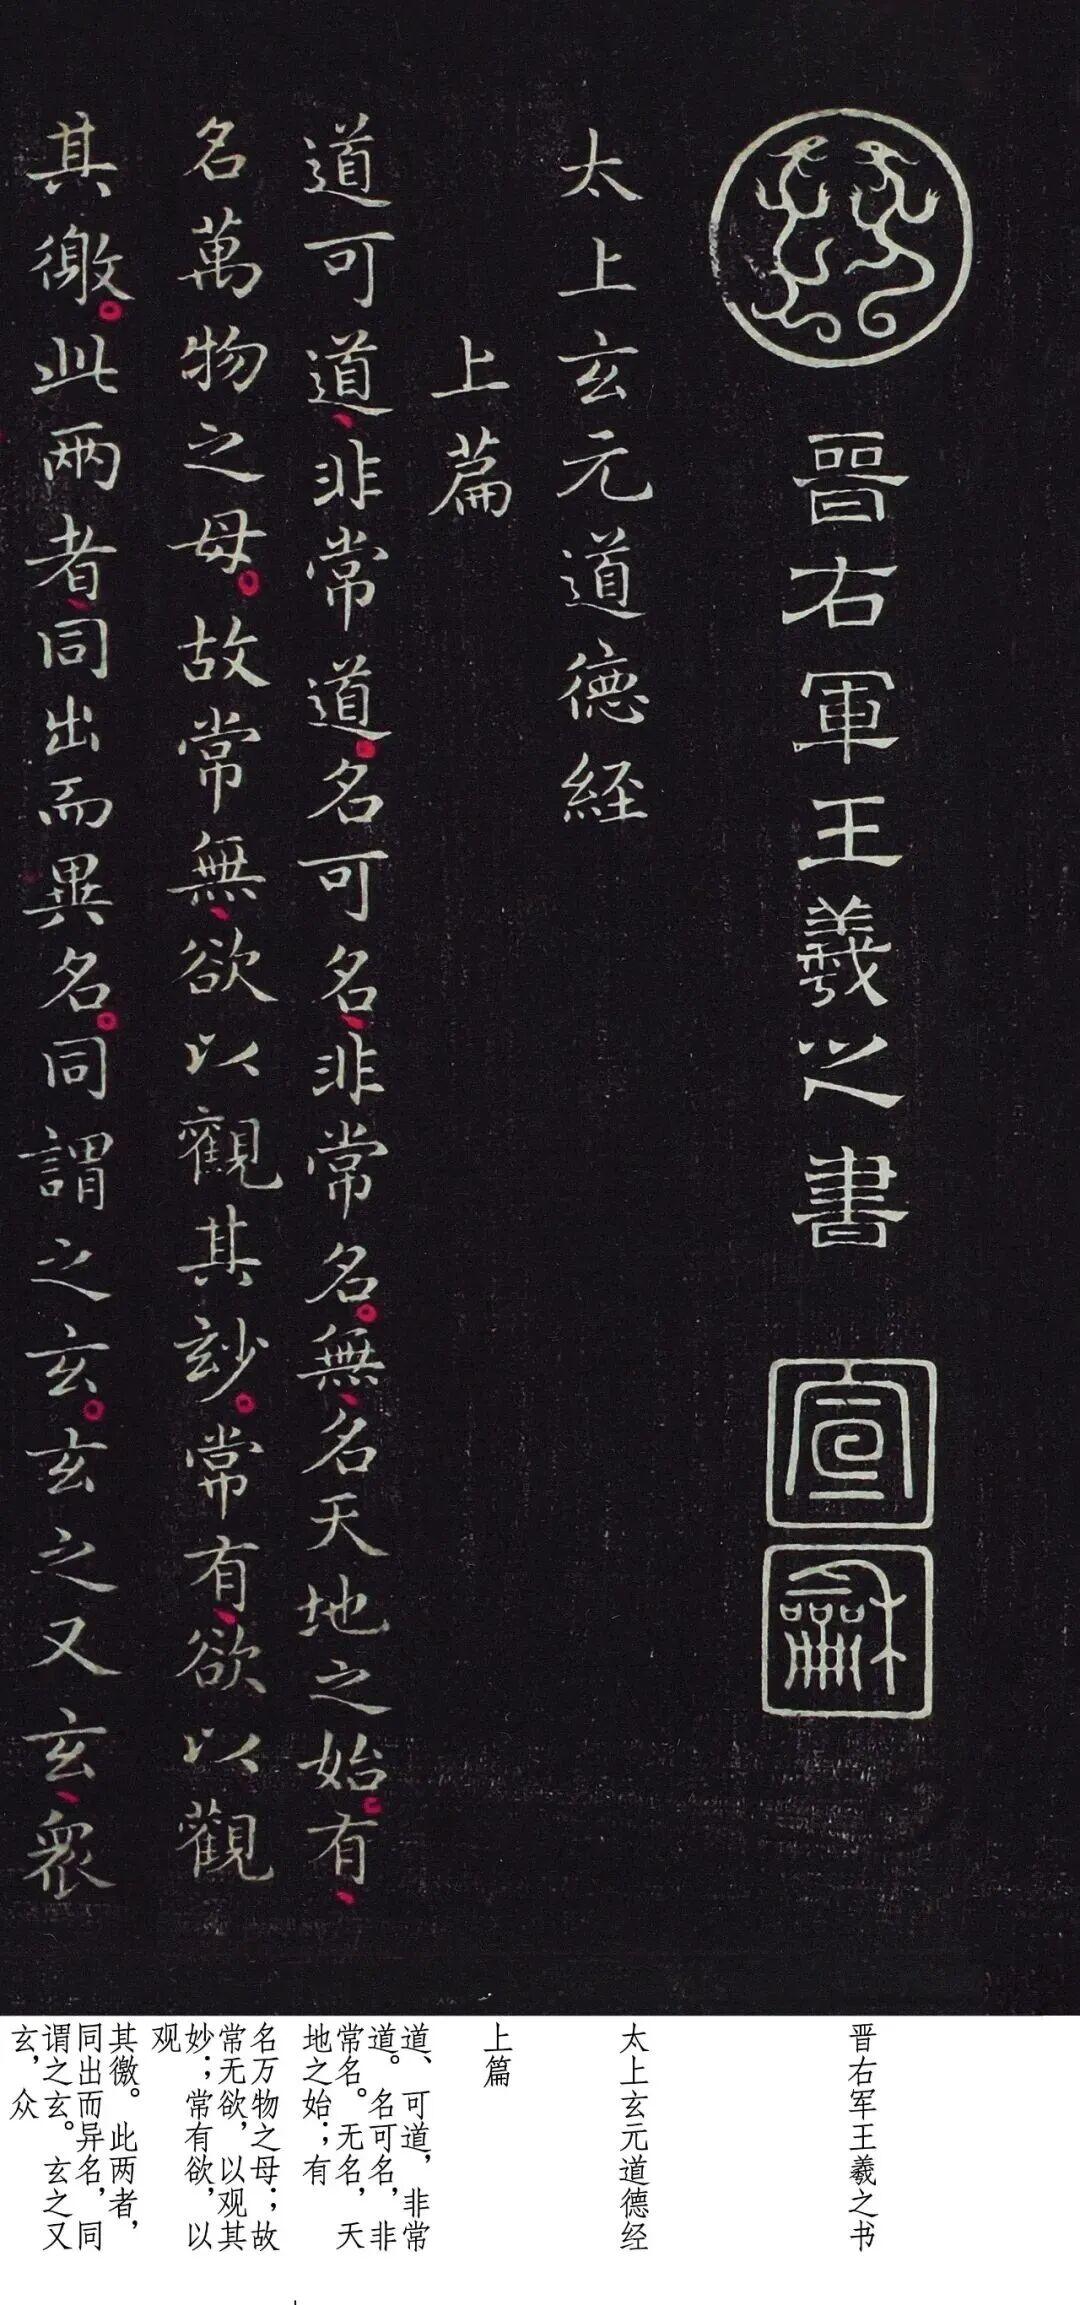 晋右軍王羲之書
宣
龢
太上玄元道德経
上篇
道可道非常道名可名非常名無名天地之始有
名萬物之母故常無欲以觀其玅常有欲以觀
其徼此兩者同出而異名同謂之玄玄之又玄眾
晋右军王羲之书
太上玄元道德经
上篇
道、可道，非常
道。名可名，非
常名。无名，天
地之始；有
名万物之母；故
常无欲，以观其
妙；常有欲，以
观
其徼。此两者，
同出而异名，同
谓之玄。玄之又
玄，众